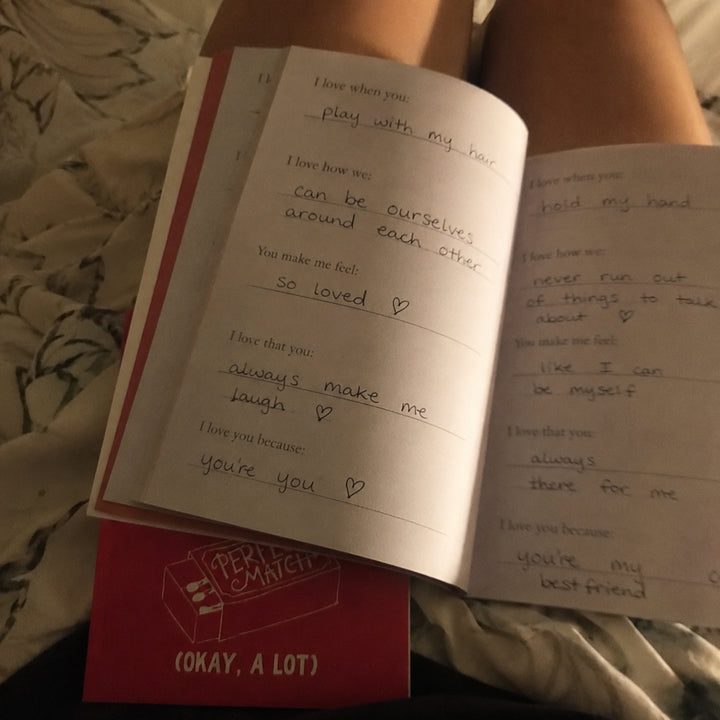 I love when you:
play with my hair
I love how we:
can be ourselves
around each other
You make me feel:
so loved ♡
I love that you:
always make me
laugh ♡
I love you because:
you're you ♡
I love when you:
hold my hand
I love how we:
never run out
of things to talk
about ♡
You make me feel:
like I can
be myself
I love that you:
always
there for me
I love you because:
you're my
best friend
MATCH
(OKAY, A LOT)